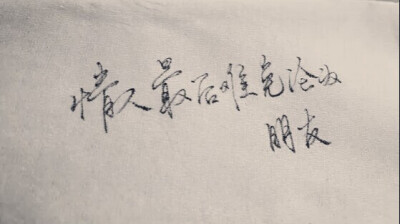 情人最后难免沦为
朋友